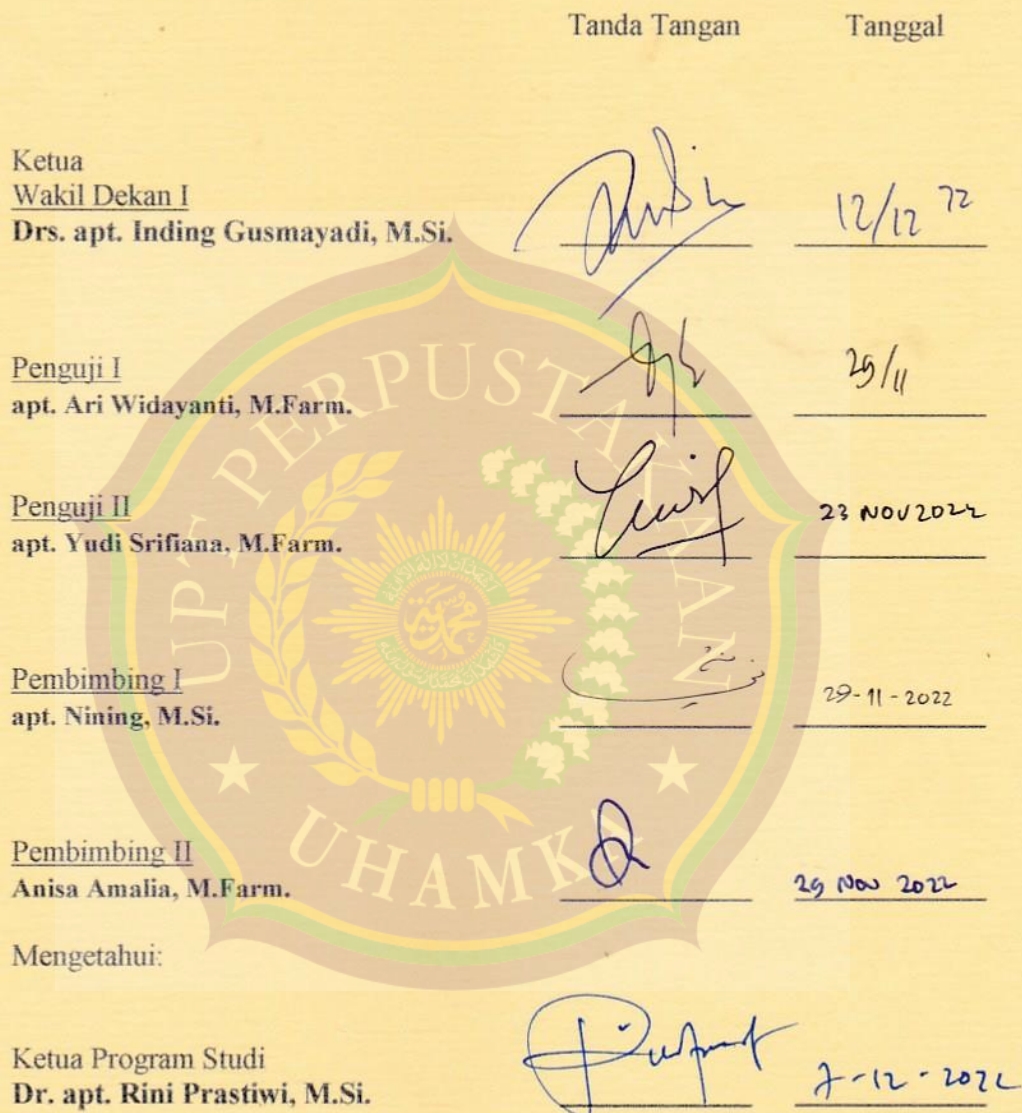 Tanda Tangan Tanggal
Ketua
Wakil Dekan I
Drs. apt. Inding Gusmayadi, M.Si.
12/12 22
Penguji I
apt. Ari Widayanti, M.Farm.
29/11
Penguji II
apt. Yudi Srifiana, M.Farm.
23 NOV 2022
Pembimbing I
apt. Nining, M.Si.
29-11-2022
Pembimbing II
Anisa Amalia, M.Farm.
29 Nov 2022
Mengetahui:
Ketua Program Studi
Dr. apt. Rini Prastiwi, M.Si.
7-12-2022
UPT PERPUSTAKAAN
UHAMKA
محمدية